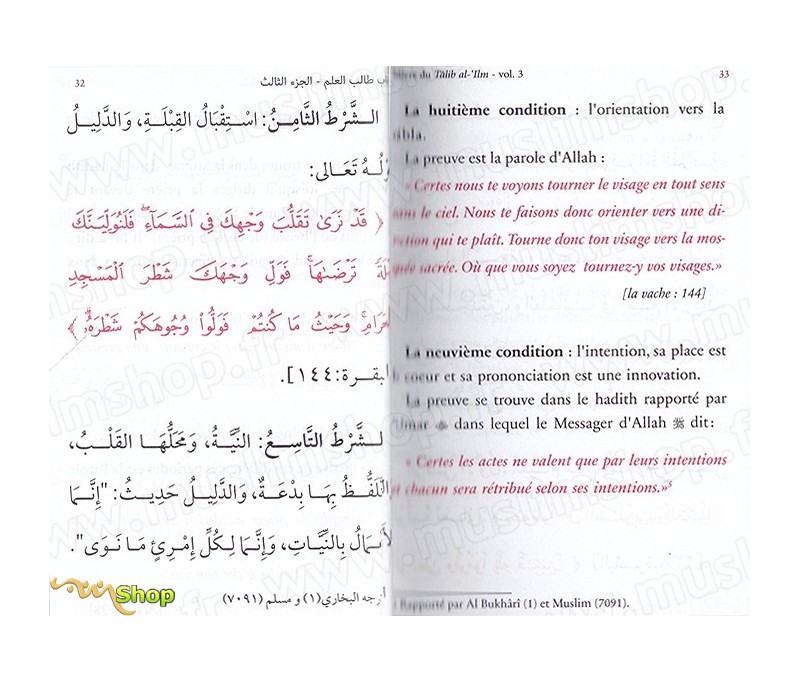 32
طالب العلم - الجزء الثالث
الشَّرْطُ الثَّامِنُ: اسْتِقْبَالُ القِبْلَةِ، وَالدَّلِيلُ
تَعَالَى:
﴿ قَدْ نَرَىٰ تَقَلُّبَ وَجْهِكَ فِي السَّمَآءِ ۖ فَلَنُوَلِّيَنَّكَ
تَرْضَىٰهَا ۚ فَوَلِّ وَجْهَكَ شَطْرَ الْمَسْجِدِ
وَحَيْثُ مَا كُنتُمْ فَوَلُّوا۟ وُجُوهَكُمْ شَطْرَهُۥ ﴾
البقرة:١٤٤].
الشَّرْطُ التَّاسِعُ: النِّيَّةُ، وَمَحَلُّهَا القَلْبُ،
التَّلَفُّظُ بِهَا بِدْعَةٌ، وَالدَّلِيلُ حَدِيثُ: "إِنَّمَا
بِالنِّيَّاتِ، وَإِنَّمَا لِكُلِّ إِمْرِئٍ مَا نَوَى".
البخاري (١) و مسلم (٧٠٩١)
Shop
du Tâlib al-'Ilm - vol. 3
33
La huitième condition : l'orientation vers la
La preuve est la parole d'Allah :
« Certes nous te voyons tourner le visage en tout sens
le ciel. Nous te faisons donc orienter vers une di-
rection qui te plaît. Tourne donc ton visage vers la mos-
quée sacrée. Où que vous soyez tournez-y vos visages.»
[la vache : 144]
La neuvième condition : l'intention, sa place est
coeur et sa prononciation est une innovation.
La preuve se trouve dans le hadith rapporté par
dans lequel le Messager d'Allah ﷺ dit :
« Certes les actes ne valent que par leurs intentions
et chacun sera rétribué selon ses intentions.»⁵
Rapporté par Al Bukhârî (1) et Muslim (7091).
www.muslimshop.fr